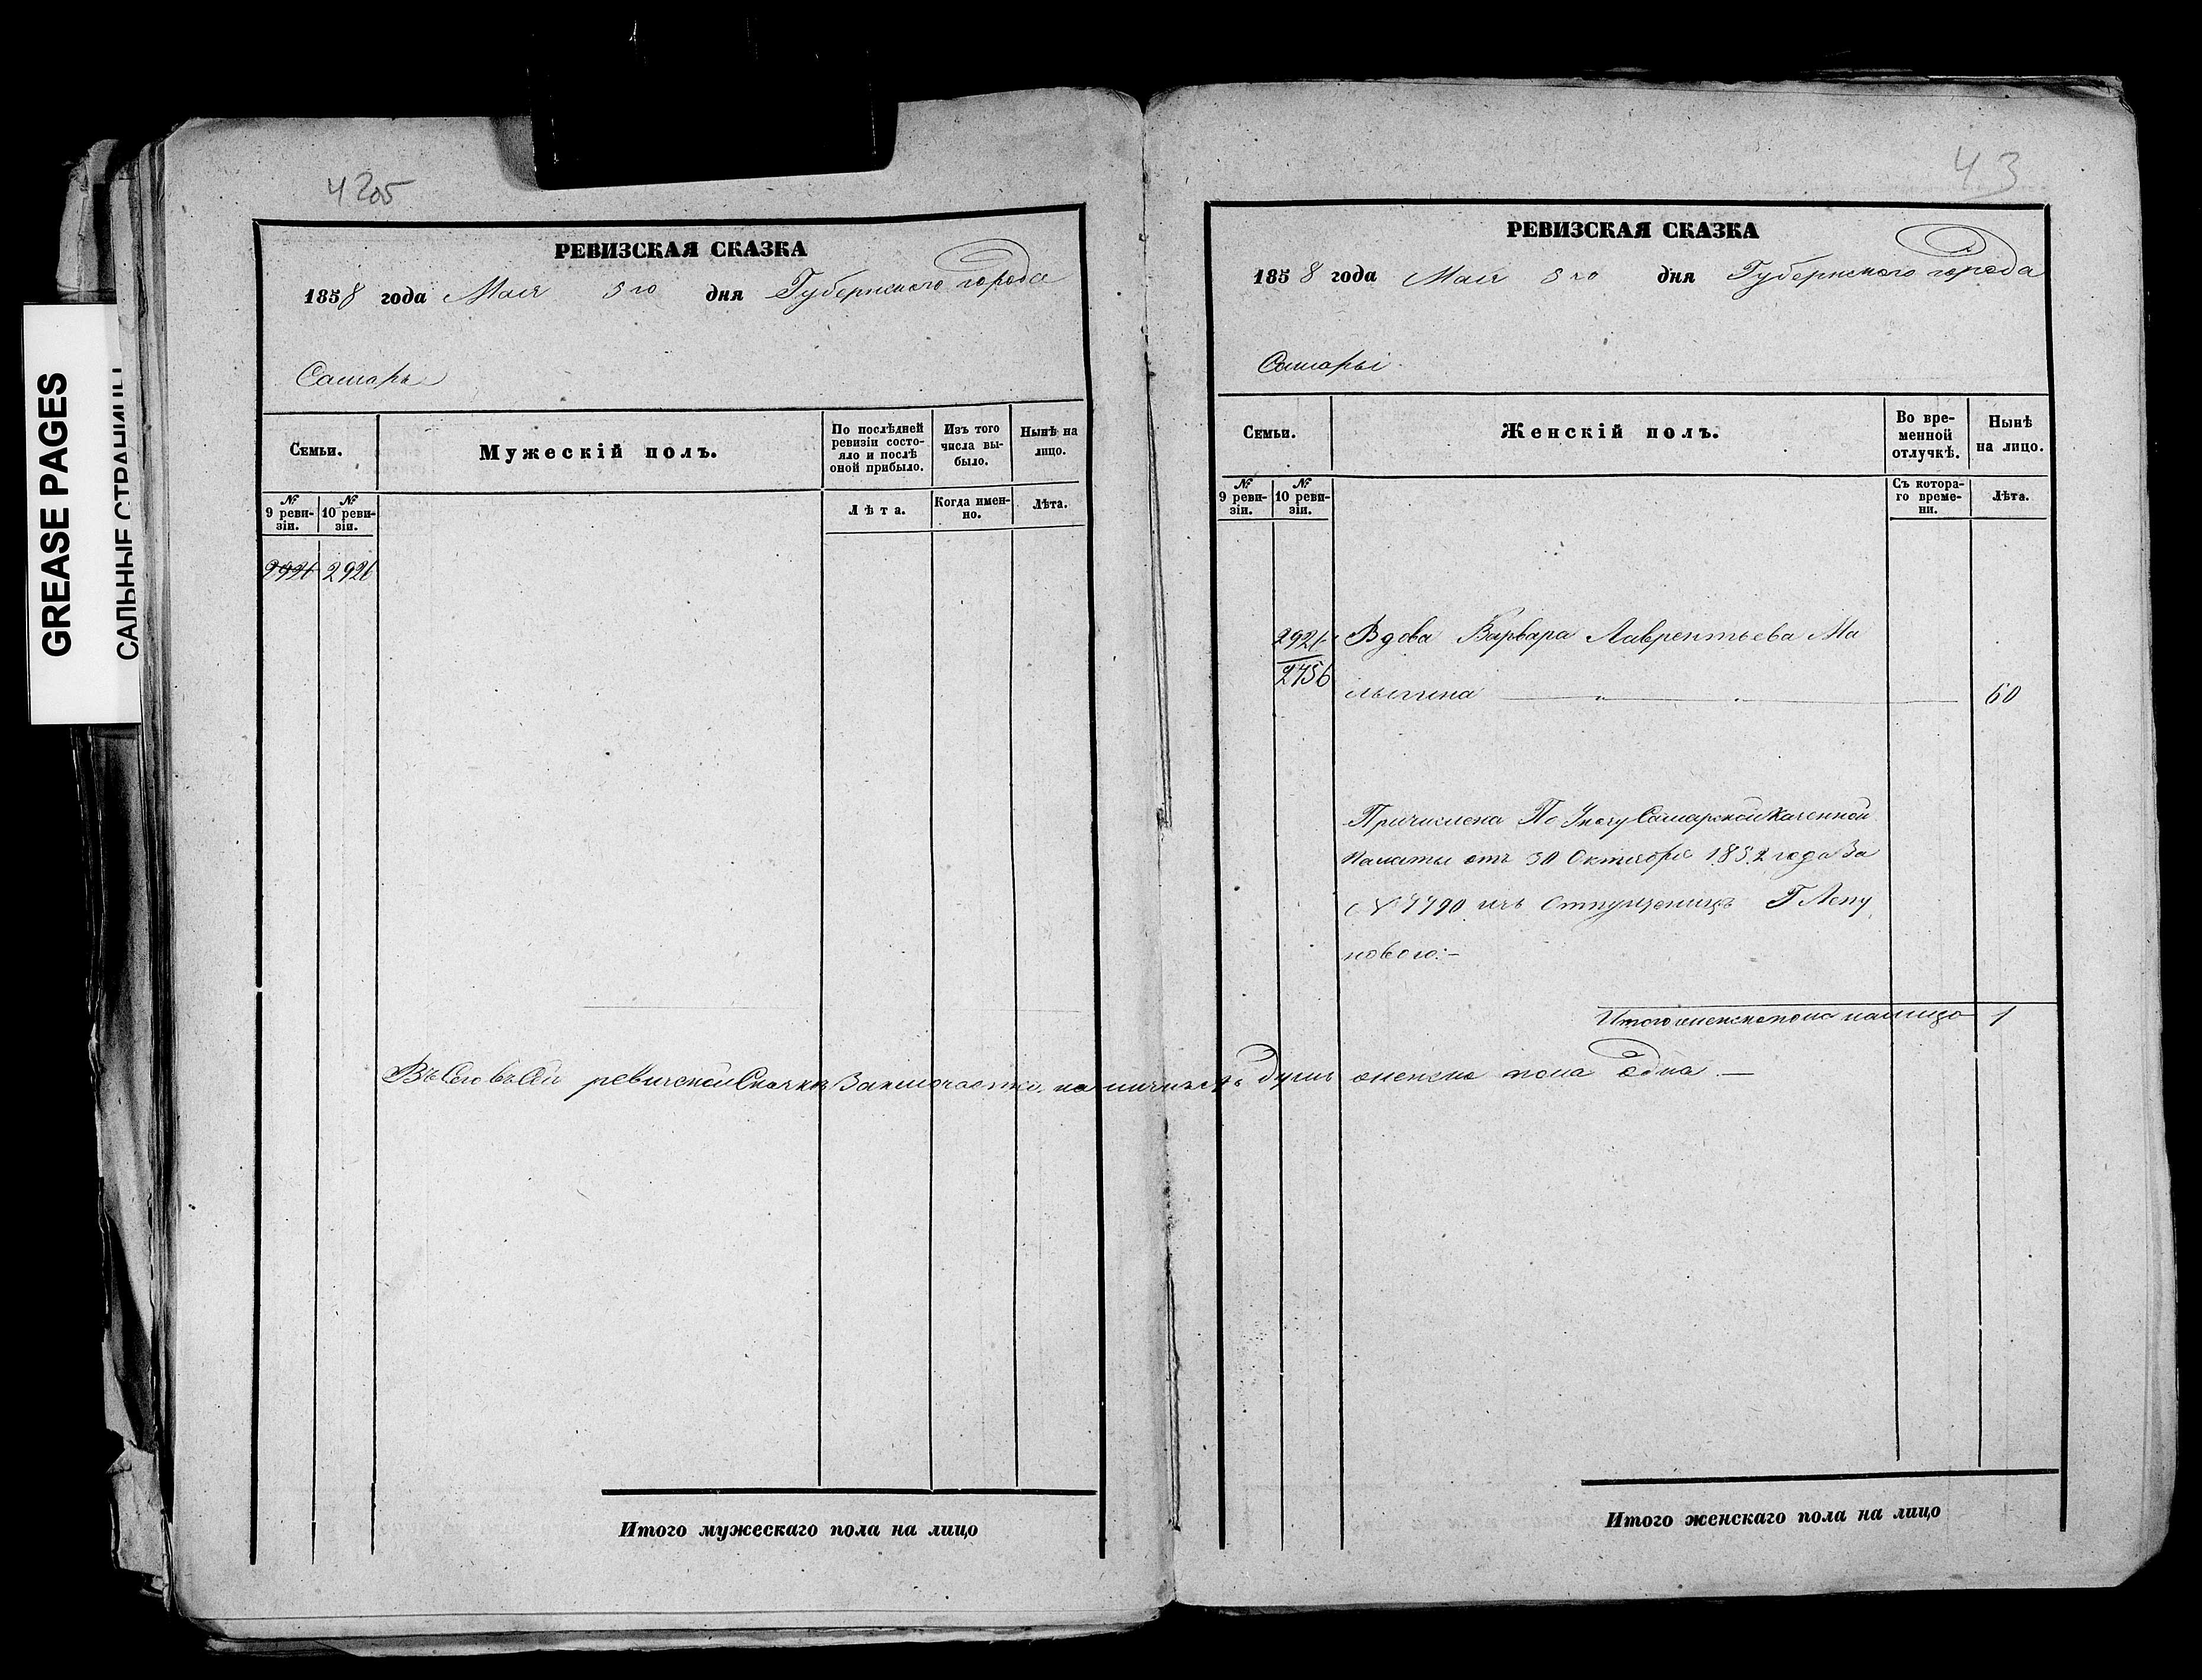 GREASE PAGES
САЛЬНЫЕ СТРАНИЦЫ
4205
РЕВИЗСКАЯ СКАЗКА
1858 года Мая 5го дня Губернскаго города
Самары
Семьи.
Мужескій полъ.
По послѣдней ревизіи состояло и послѣ оной прибыло.
Изъ того числа выбыло.
Нынѣ на лицо.
№ 9 ревизіи.
№ 10 ревизіи.
Лѣта.
Когда именно.
Лѣта.
2921
Въ сего въ сей ревизской сказкѣ заключается на личность
Итого мужескаго пола на лицо
43
РЕВИЗСКАЯ СКАЗКА
1858 года Мая 5го дня Губернскаго города
Самары
Семьи.
Женскій полъ.
Во временной отлучкѣ.
Нынѣ на лицо.
№ 9 ревизіи.
№ 10 ревизіи.
Съ котораго времени.
Лѣта.
2921 Вдова Варвара Лаврентьева Ма
2756
лыгина 60
Причислена По Указу Самарской Казенной
Палаты отъ 30 Октября 1852 года За
№ 7790 изъ Отпущеницъ Г
нового:-
Итого женска пола налицо 1
душъ женска пола одна —
Итого женскаго пола на лицо